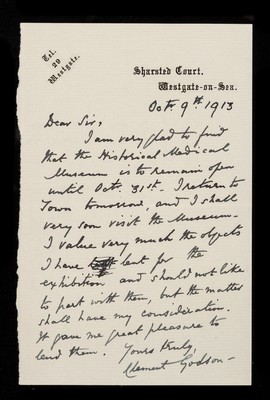 Tel.
29
Westgate.
Sharsted Court,
Westgate-on-Sea.
Oct. 9th 1913
Dear Sir,
I am very glad to find
that the Historical Medical
Museum is to remain open
until Oct. 31st. I return to
Town tomorrow, and I shall
very soon visit the Museum.
I value very much the objects
I have lent for the
exhibition and should not like
to part with them, but the matter
shall have my consideration.
It gave me great pleasure to
lend them. Yours truly,
Clement Godson